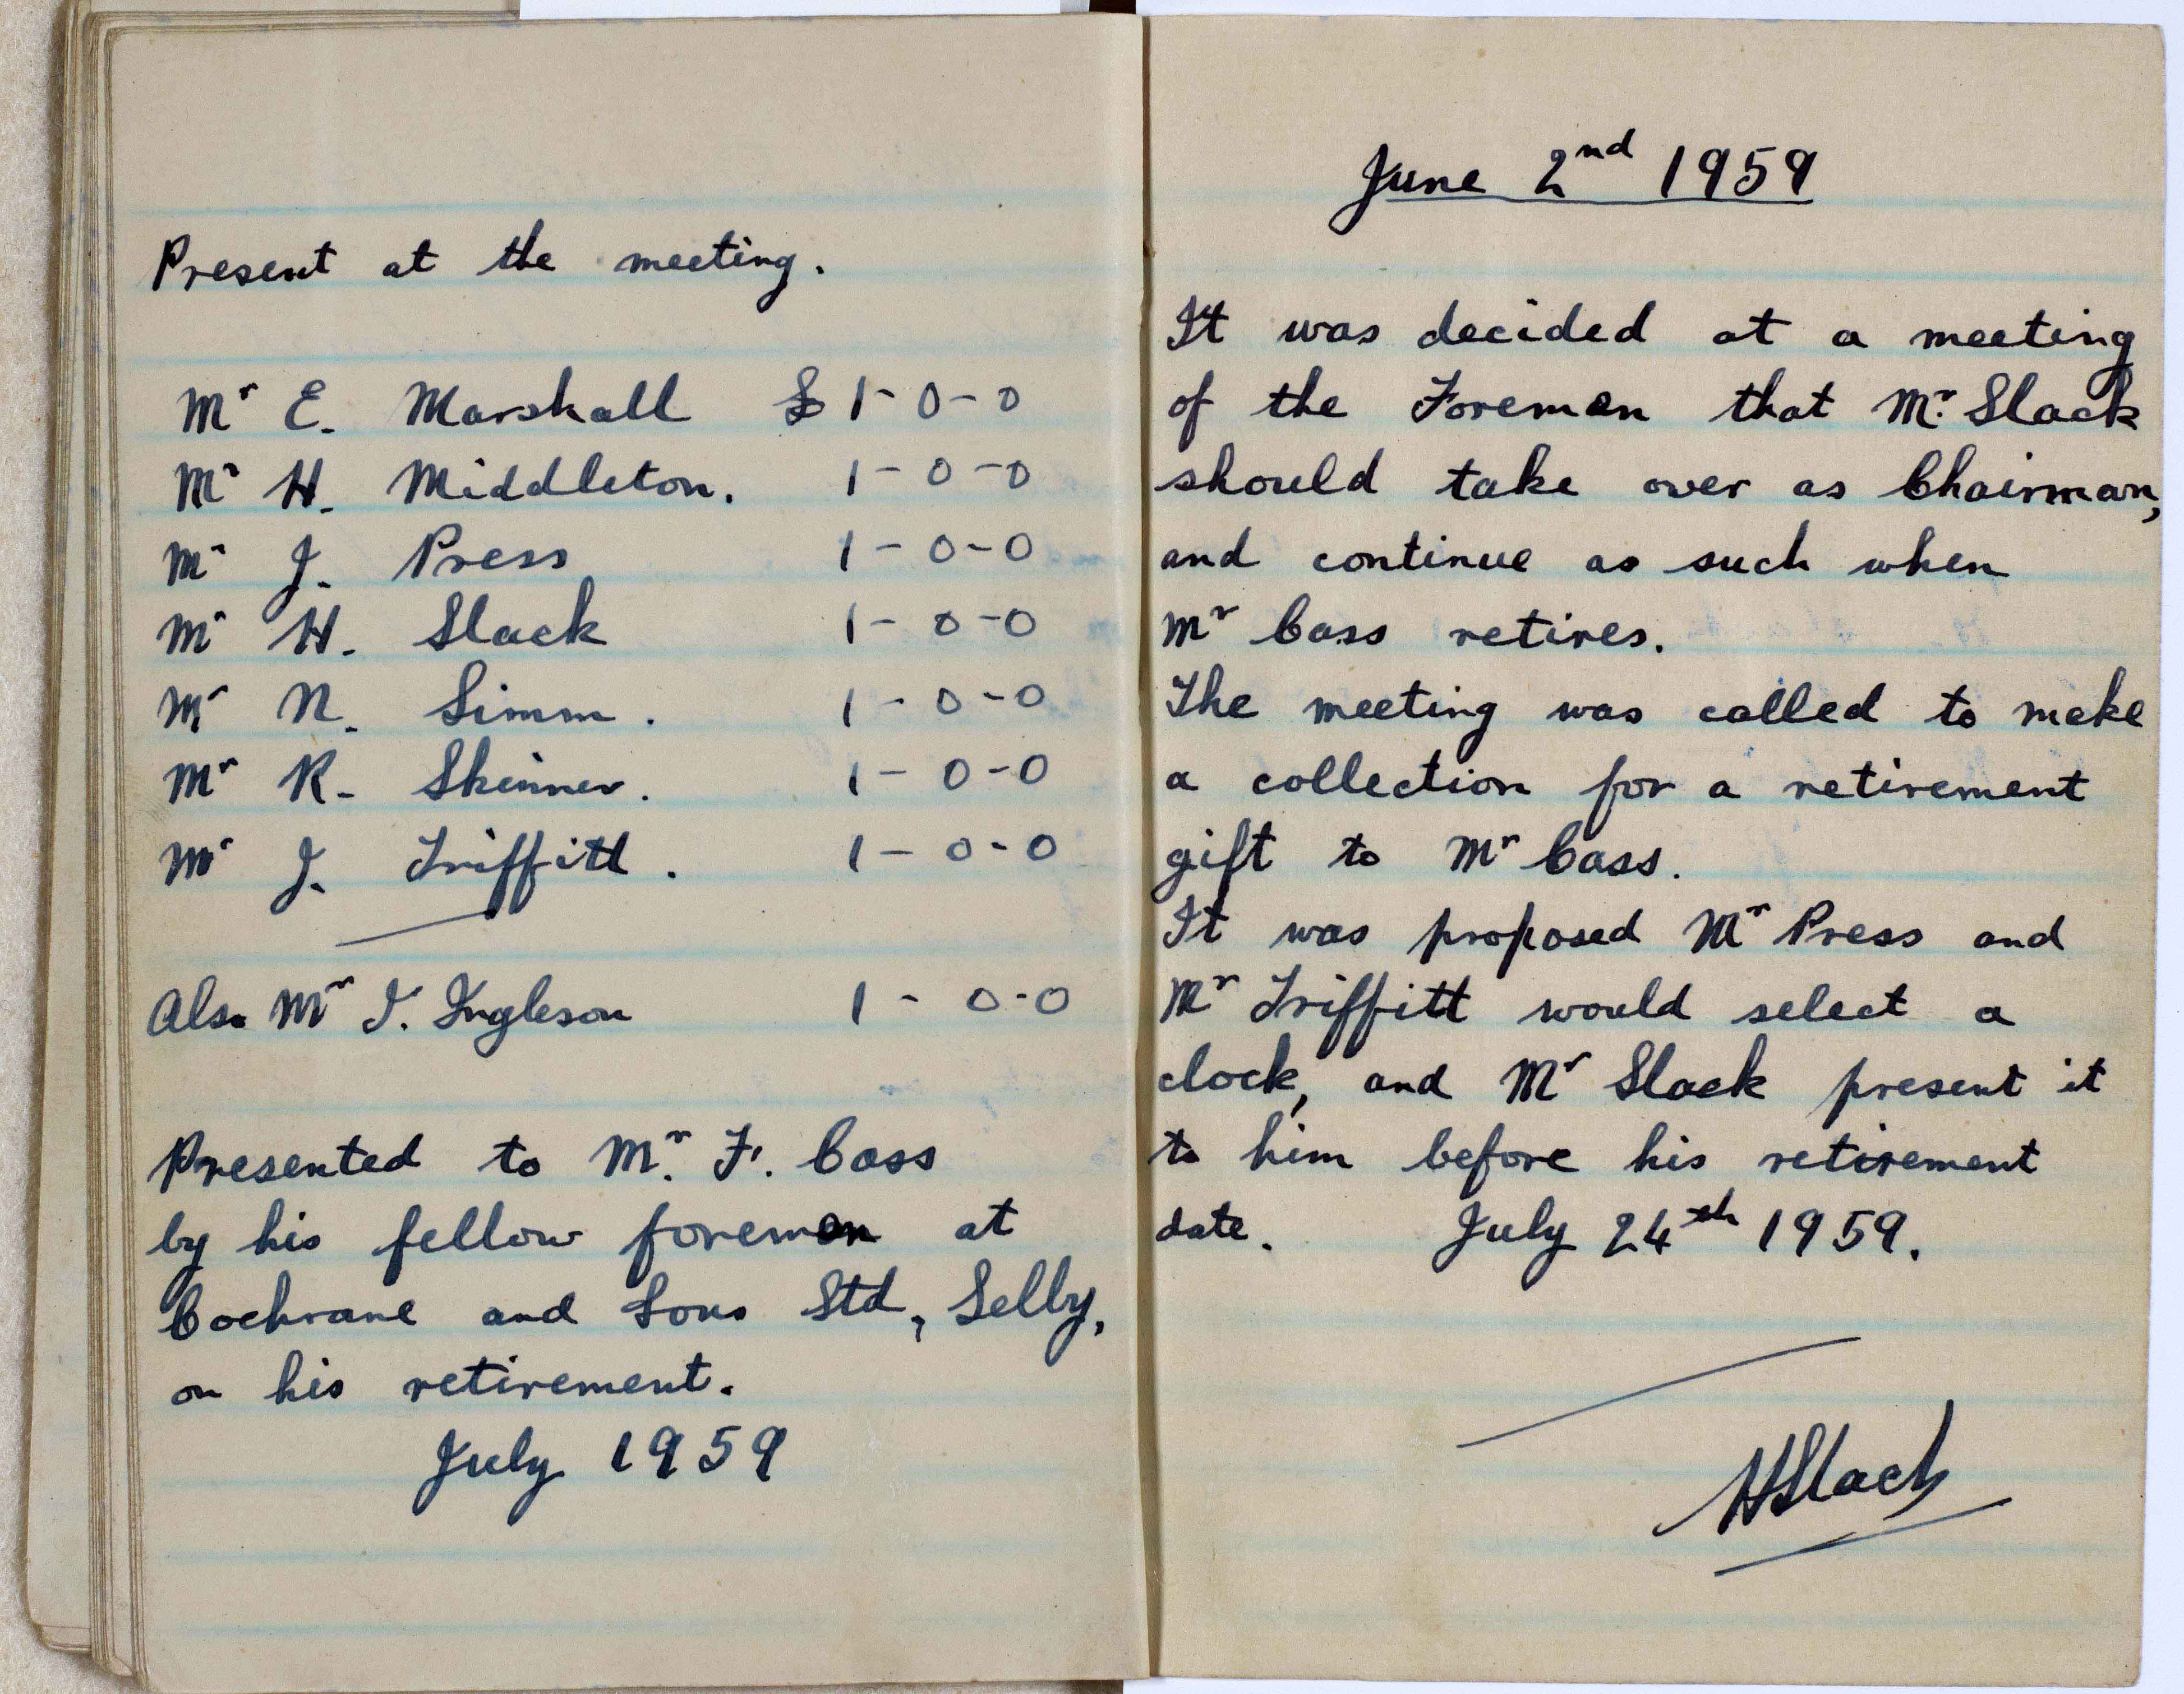 Present at the meeting.
Mr E. Marshall £ 1-0-0
Mr H. Middleton. 1-0-0
Mr J. Press 1-0-0
Mr H. Slack 1-0-0
Mr N. Simm. 1-0-0
Mr R. Skinner. 1-0-0
Mr J. Triffitt. 1-0-0
Also Mr I. Ingleson 1-0-0
Presented to Mr. F. Cass
by his fellow foremen at
Cochrane and Sons Ltd, Selby,
on his retirement.
July 1959
June 2nd 1959
It was decided at a meeting
of the Foremen that Mr. Slack
should take over as Chairman,
and continue as such when
Mr Cass retires.
The meeting was called to make
a collection for a retirement
gift to Mr Cass.
It was proposed Mr Press and
Mr Triffitt would select a
clock, and Mr Slack present it
to him before his retirement
date. July 24th 1959.
HSlack